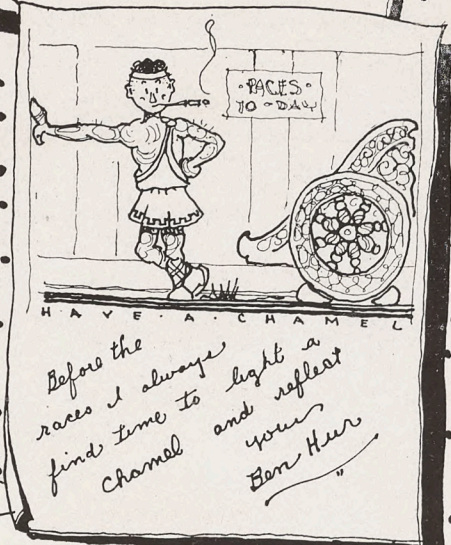 ·RACES·
TO-DAY
HAVE·A·CHAMEL
Before the
races I always
find time to light a
chamel and reflect
yours
Ben Hur
"